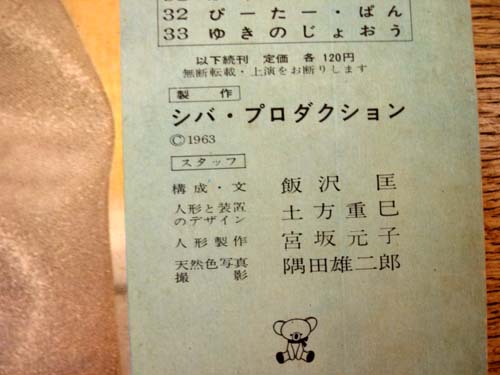 32 ぴーたー・ぱん
33 ゆきのじょおう
以下続刊 定価 各 120円
無断転載・上演をお断りします
製作
シバ・プロダクション
©1963
スタッフ
構成・文 飯沢匡
人形と装置のデザイン 土方重巳
人形製作 宮坂元子
天然色写真撮影 隅田雄二郎